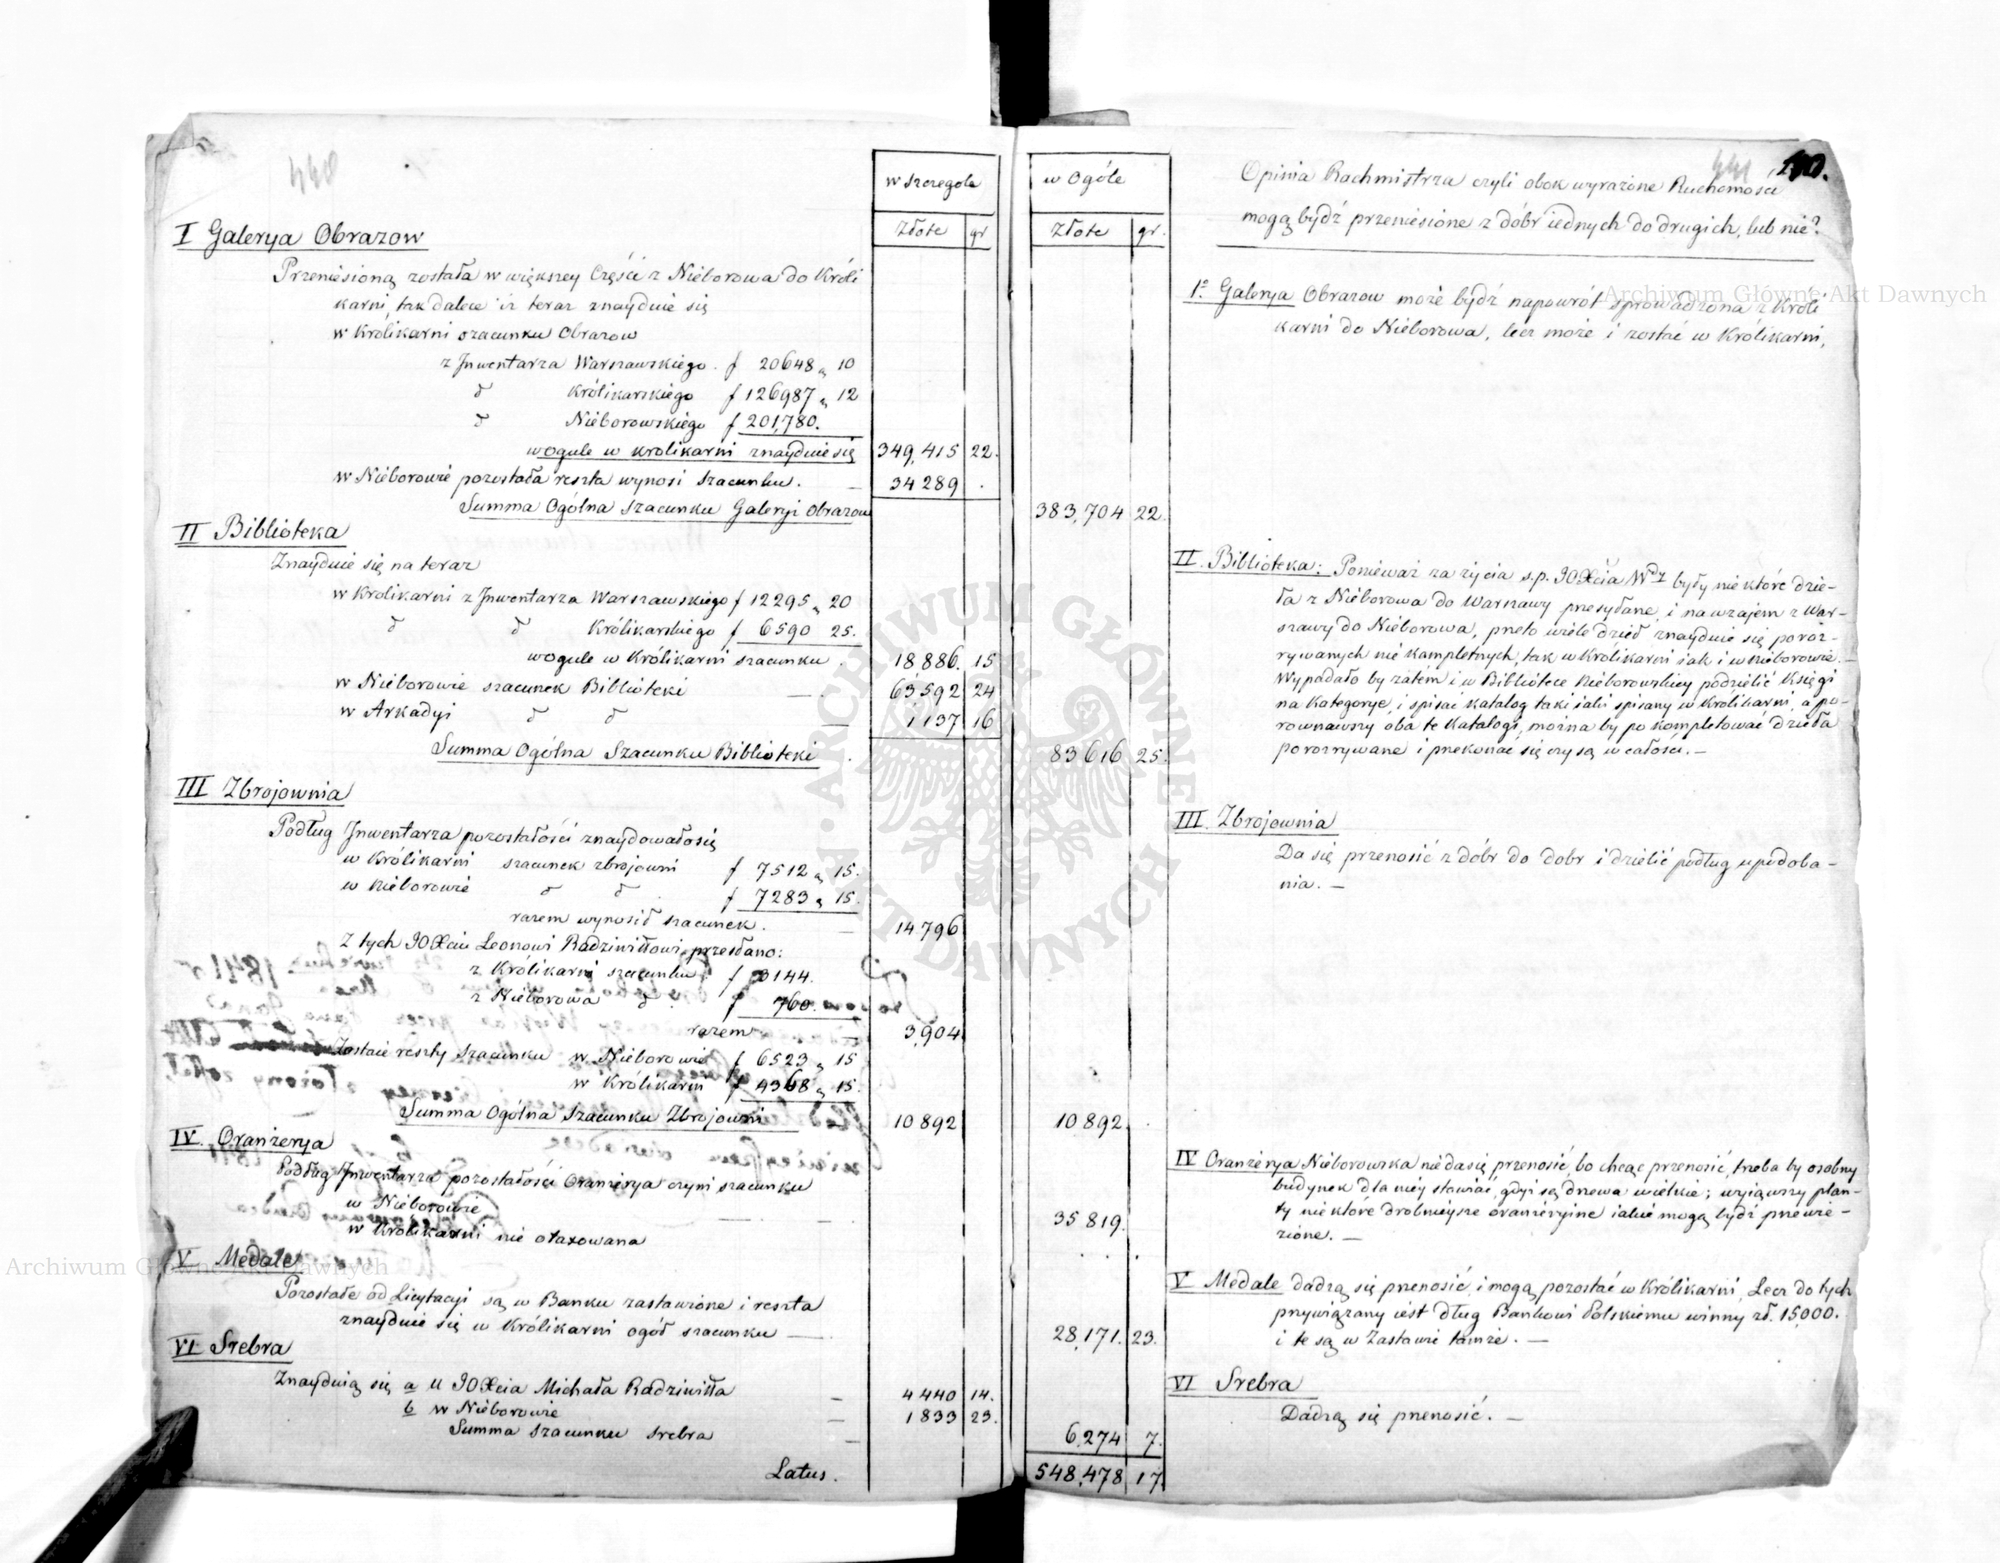 440
w Szczegole
Złote gr
I Galerya Obrazow
Przeniesioną została w większey Części z Nieborowa do Króli
karni, tak dalece iż teraz znayduie się
w Krolikarni szacunku Obrazow
z Inwentarza Warszawskiego . f 20648 „ 10
d° Królikarskiego f 126987 „ 12
d° Nieborowskiego f 201,780.
wogule w Krolikarni znayduie się 349,415 22.
w Nieborowie pozostała reszta wynosi szacunku. — 34289 .
Summa Ogólna szacunku Galeryi Obrazow
II Biblioteka
Znayduie się na teraz
w Krolikarni z Inwentarza Warszawskiego f 12295 „ 20
d° d° Królikarskiego f 6590 25.
wogule w Królikarni szacunku . 18886. 15
w Nieborowie szacunek Biblioteki — 63,592 24
w Arkadyi d° d° 1137 16
Summa Ogólna Szacunku Biblioteki .
III Zbrojownia
Podług Inwentarza pozostałości znaydowało się
w Królikarni szacunek zbrojowni f 7512 „ 15.
w Nieborowie d° d° . f 7283 „ 15.
razem wynosił szacunek. — 14796
Z tych JO Xciu Leonowi Radziwiłłowi przesłano:
z Królikarni szacunku f 3144.
z Nieborowa d° f 760.
razem — 3,904
Zostaie reszty szacunku w Nieborowie f 6523 „ 15
w Królikarni f 4368 „ 15.
Summa Ogólna Szacunku Zbrojowni 10892
IV. Oranżerya
Podług Inwentarza pozostałości Oranżerya czyni szacunku
w Nieborowie — —
w Krolikarni nie otaxowana
V Medale
Pozostałe od Licytacyi są w Banku zastawione i reszta
znayduie się w Królikarni ogół szacunku — .
VI Srebra
Znayduią się a u JO Xcia Michała Radziwiłła — 4440 14.
b w Nieborowie — 1833 23.
Summa szacunku srebra —
Latus.
w Ogóle
Złote gr.
383,704 22.
83616 25.
10892 .
35819.
28,171. 23.
6,274 7.
548,478 17
441
Opinia Rachmistrza czyli obok wyrażone Ruchomości
mogą bydź przeniesione z dóbr iednych do drugich, lub nie?
1° Galerya Obrazow może bydź napowrót sprowadzona z Króli
karni do Nieborowa, lecz może i zostać w Królikarni,
II. Biblioteka: Ponieważ za życia s.p. JO Xcia były nie które dzie-
ła z Nieborowa do Warszawy przesyłane, i nawzajem z War-
szawy do Nieborowa, przeto wiele dzieł znayduie się poroz-
rywanych nie kompletnych, tak w Krolikarni iak i w Nieborowie. —
Wypadało by zatém i w Bibliotece Nieborowskiey podzielić Księgi
na Kategorye, i spisać katalog taki iaki spisany w Krolikarni, a po-
rownawszy oba te Katalogi, można by po kompletować dzieła
porozrywane i przekonać się czy są w całości. —
III. Zbrojownia
Da się przenosić z dóbr do dobr i dzielić podług upodoba-
nia. —
IV Oranżerya Nieborowska nieda się przenosić bo chcąc przenosić, trzeba by osobny
budynek dla niéy stawiać, gdyż są drzewa wielkie; wyiąwszy plan-
ty nie które drobnieysze oranżeryine iakie mogą bydź przewie-
zione. —
V Medale dadzą się przenosić, i mogą pozostać w Królikarni, Lecz do tych
przywiązany iest dług Bankowi Polskiemu winny zł. 15,000.
i te są w Zastawie tamże. —
VI Srebra
Dadzą się przenosić. —
Archiwum Główne Akt Dawnych
Archiwum Główne Akt Dawnych
ARCHIWUM GŁÓWNE AKT DAWNYCH